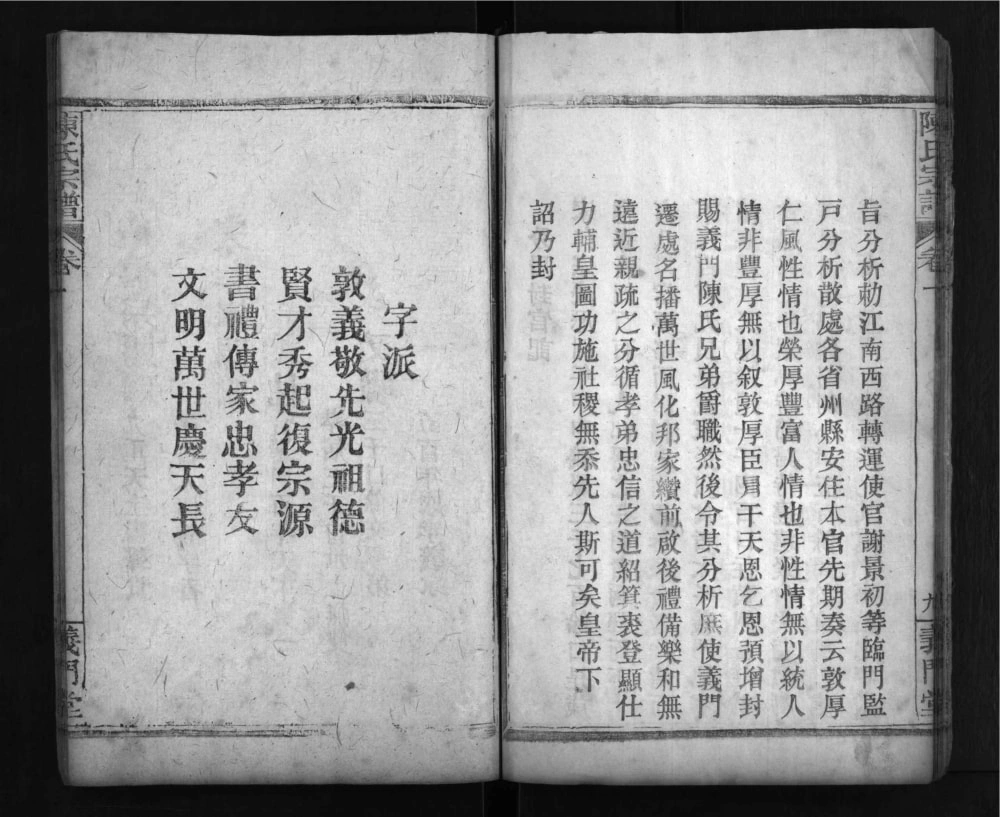 陳氏宗譜 卷一 九 義門堂
旨分析勑江南西路轉運使官謝景初等臨門監
戸分析散處各省州縣安住本官先期奏云敦厚
仁風性情也榮厚豐富人情也非性情無以統人
情非豐厚無以叙敦厚臣冒干天恩乞恩預增封
賜義門陳氏兄弟爵職然後令其分析庶使義門
遷處名播萬世風化邦家纘前啟後禮備樂和無
遠近親疏之分循孝弟忠信之道紹箕裘登顯仕
力輔皇圖功施社稷無忝先人斯可矣皇帝下
詔乃封
字派
敦義敬先光祖德
賢才秀起復宗源
書禮傳家忠孝友
文明萬世慶天長
陳氏宗譜 卷一 義門堂